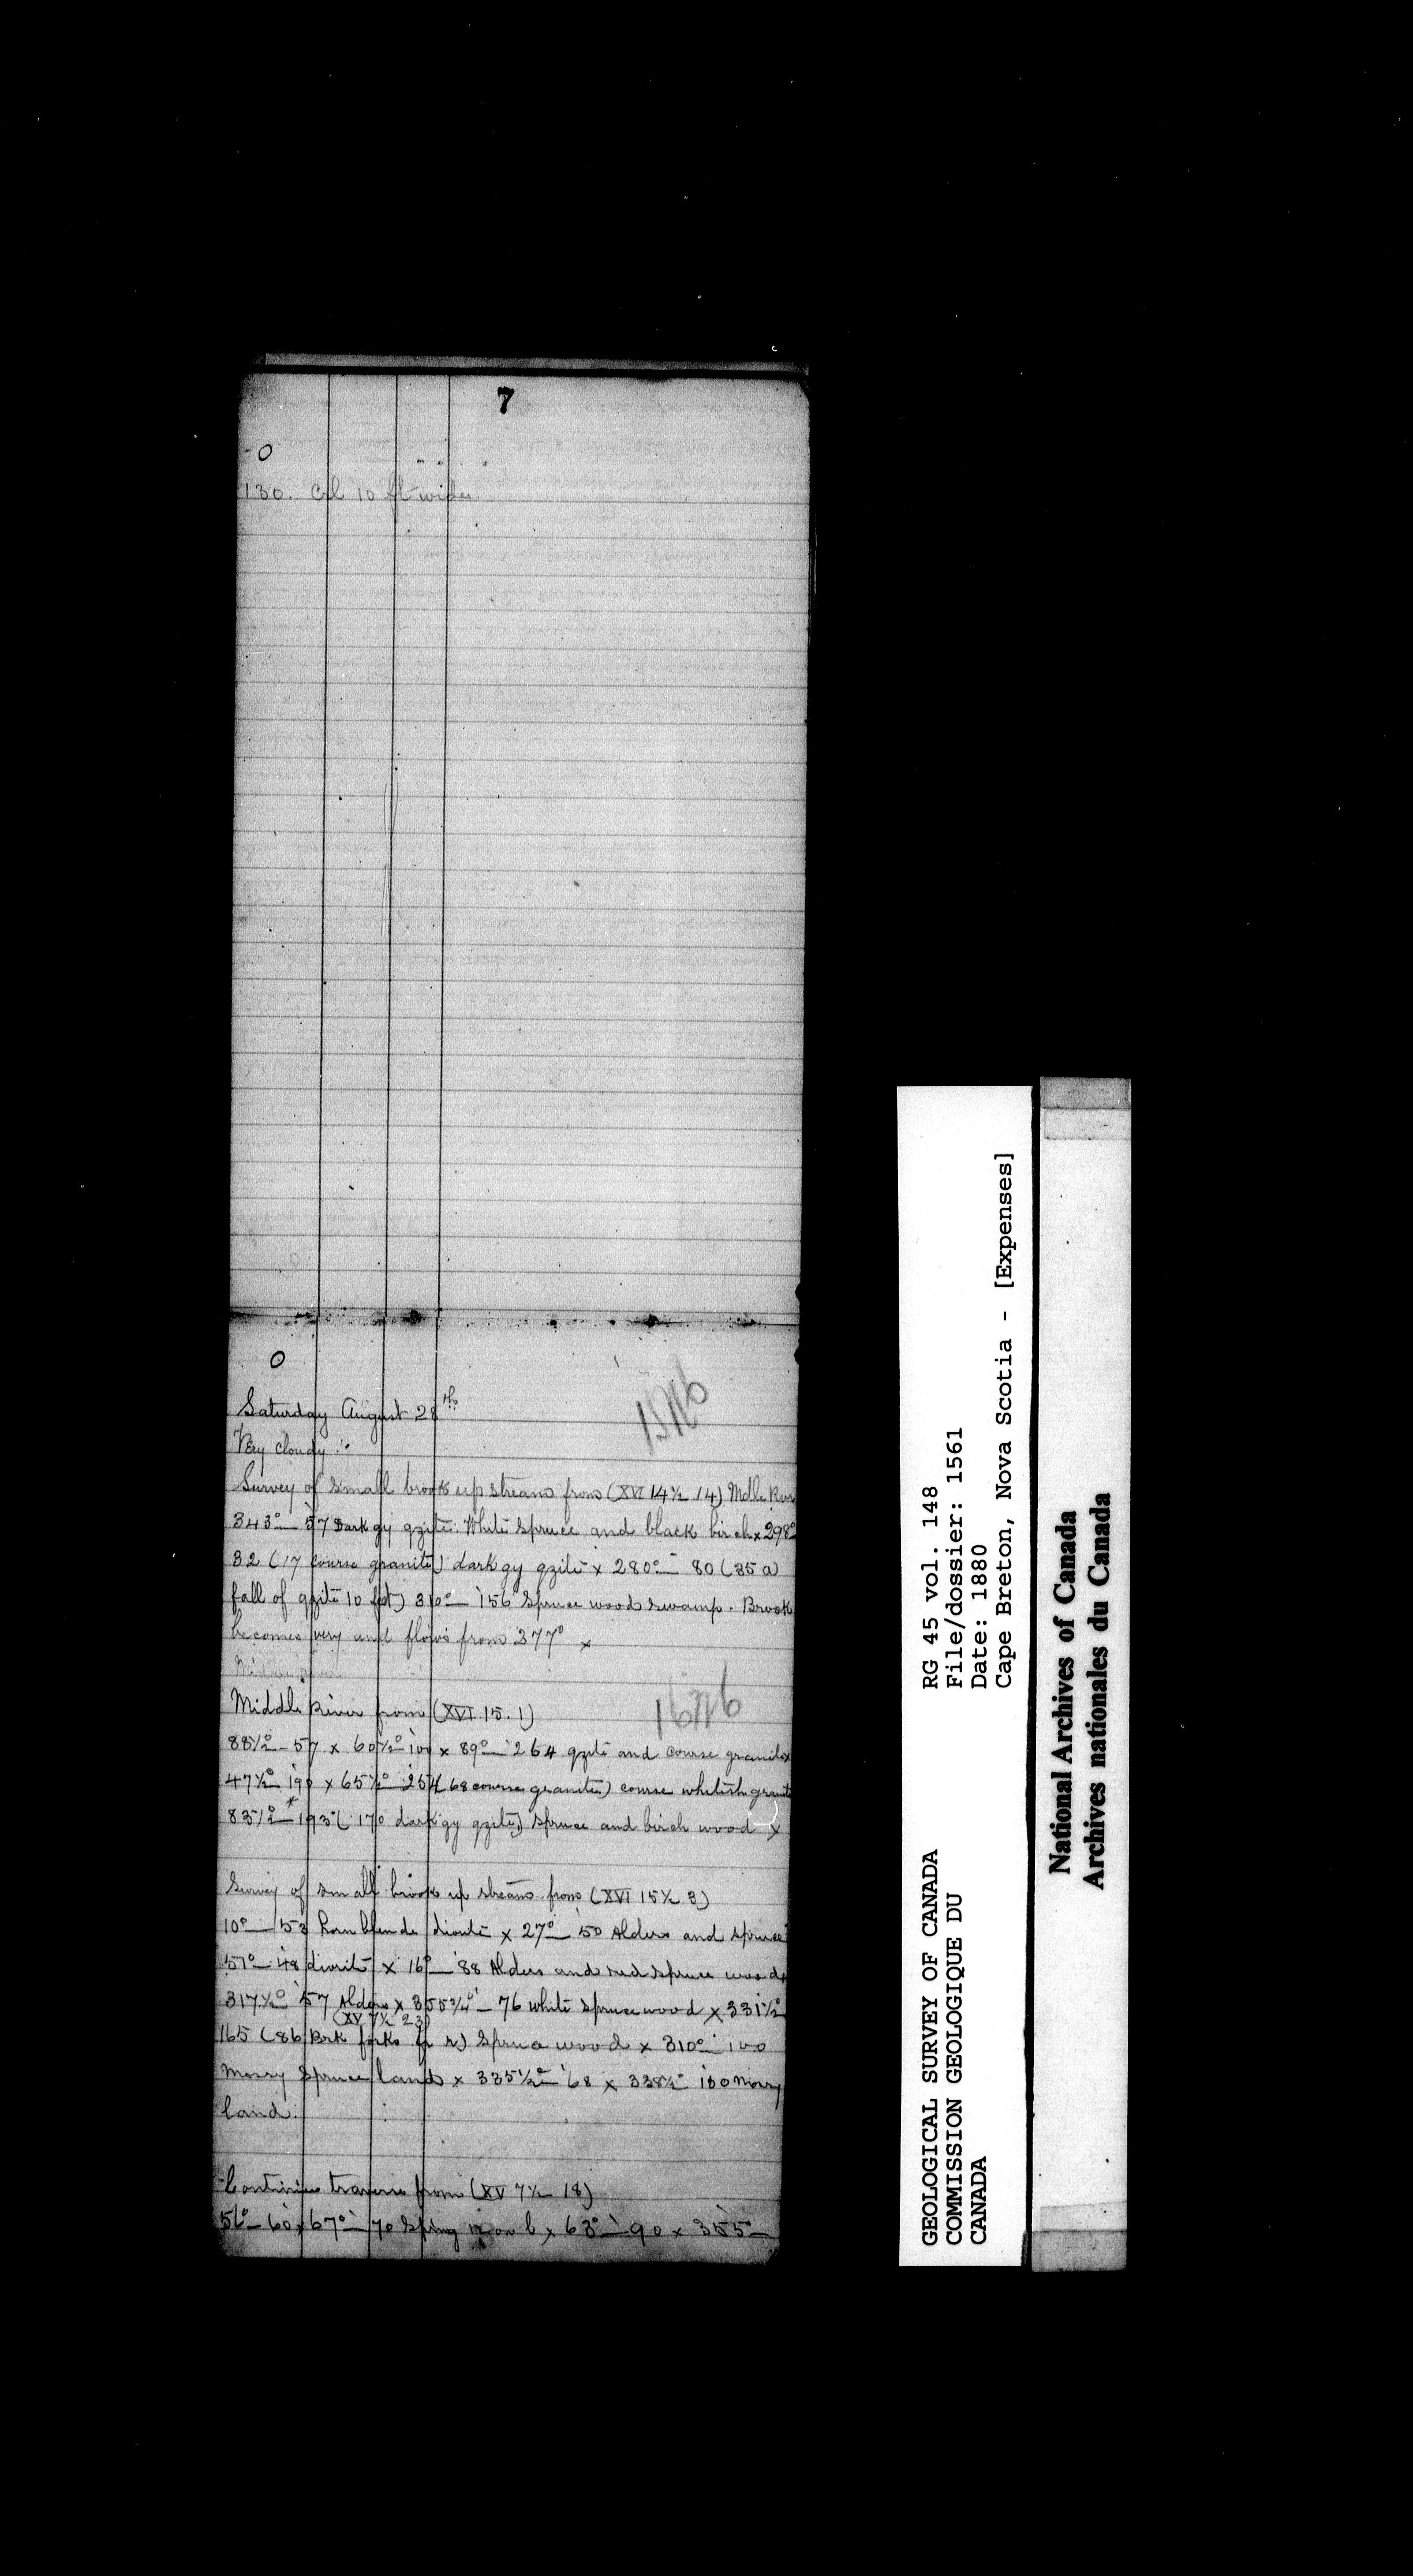 7
0
130. Col 10 ft wide
0
Saturday August 28th
Very cloudy
Survey of small brook up stream from (XVI 14½ 14) Mdle River
343° — 57 Dark gy qzite. White spruce and black birch x 298°
32 (17 course granite) dark gy qzite x 280° — 80 (35 a
fall of qzite 10 feet) 310° — 156 Spruce wood swamp. Brook
becomes very and flows from 377° x
Middle River
Middle River from (XVI 15. 1)
88½° — 57 x 60½° 100 x 89° — 264 qzite and course granite x
47½° 190 x 65½° 254 (68 course granite) course whitish granite
83½° — 193 (170 dark gy qzite) Spruce and birch wood x
Survey of small brook up stream from (XVI 15½ 3)
10° — 153 hornblende diorite x 27° — 50 Alders and spruce
51° — 48 diorite x 16° — 88 Alders and red spruce wood x
317½° 57 Alders x 355¾° — 76 white spruce wood x 331½°
(XV 7½ 23)
165 (86 Brk forks r) Spruce wood x 310° — 100
Mossy spruce land x 335½° — 68 x 338½° 180 Mossy
land.
Continue traverse from (XV 7½ 18)
51° — 60 x 67° — 70 Spring on b x 63° — 90 x 355° —
GEOLOGICAL SURVEY OF CANADA
COMMISSION GEOLOGIQUE DU
CANADA
RG 45 vol. 148
File/dossier: 1561
Date: 1880
Cape Breton, Nova Scotia - [Expenses]
National Archives of Canada
Archives nationales du Canada